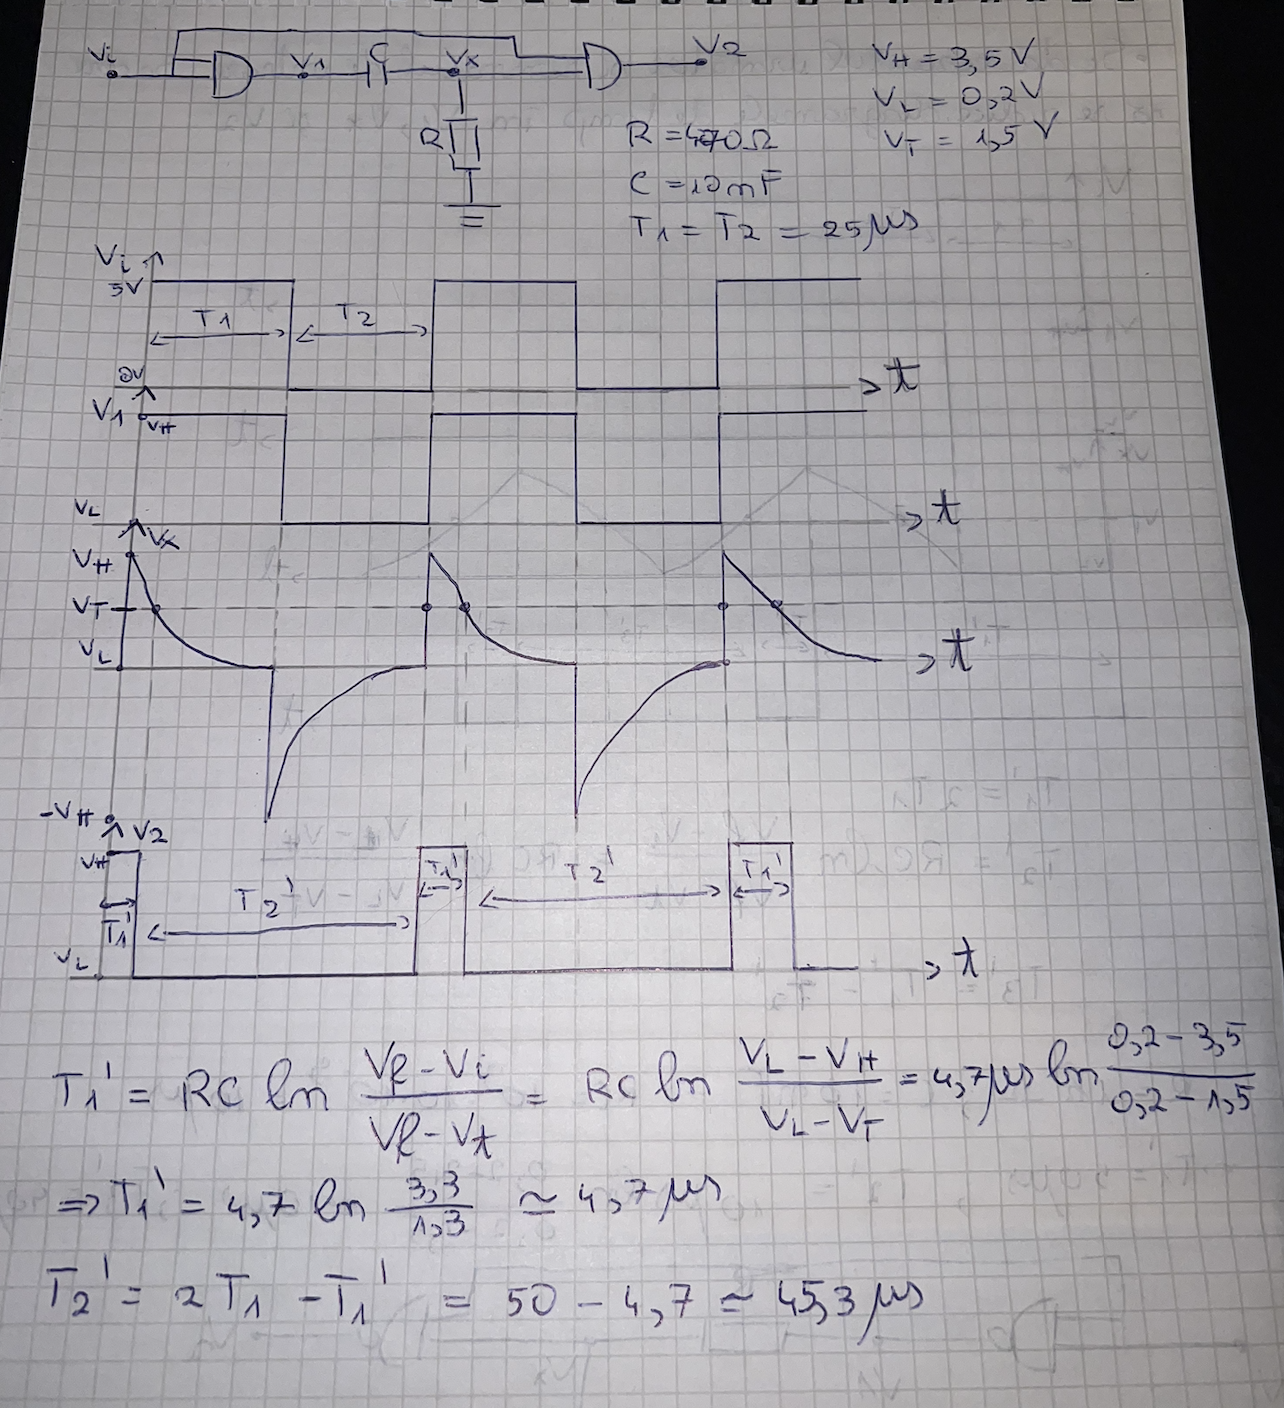 Vi V1 C Vx V2
VH = 3,5 V
VL = 0,2V
VT = 1,5 V
R
R = 470Ω
C = 10nF
T1 = T2 = 25 μs
Vi
5V
T1 T2
0V t
V1 VH
VL t
Vx
VH
VT
VL t
-VH
V2
VH
T1' T2' T1' T2' T1'
VL t
T1' = RC ln (Vf - Vi)/(Vf - Vt) = RC ln (VL - VH)/(VL - VT) = 4,7μs ln (0,2 - 3,5)/(0,2 - 1,5)
⇒ T1' = 4,7 ln 3,3/1,3 ≃ 4,7 μs
T2' = 2 T1 - T1' = 50 - 4,7 ≃ 45,3 μs